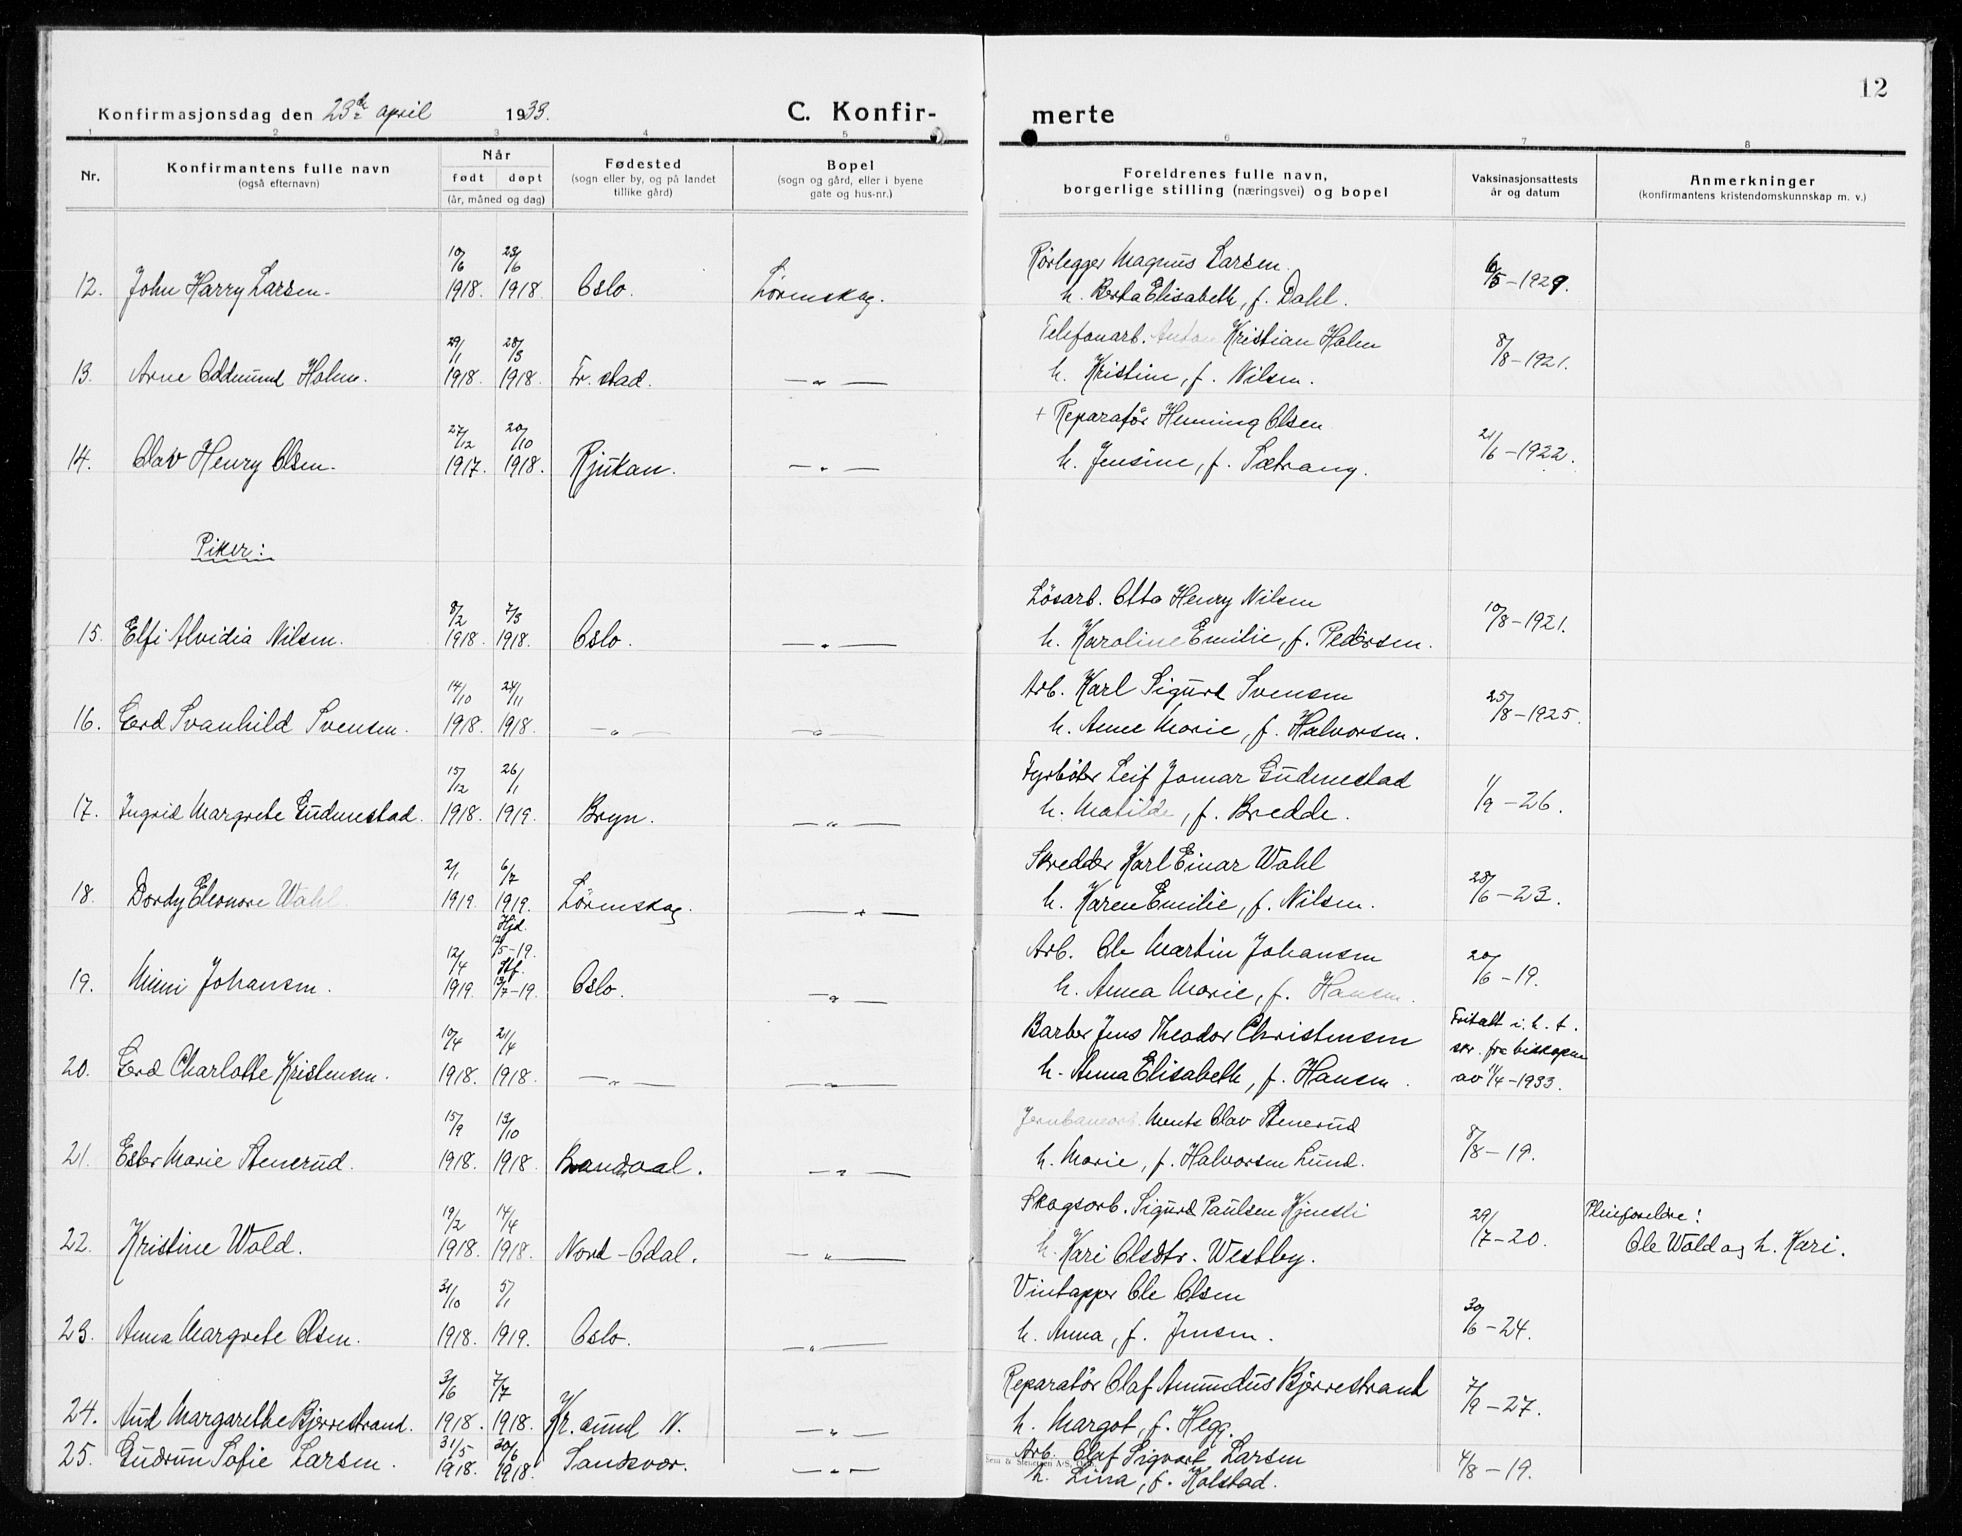 12
Konfirmasjonsdag den 23de april 1933.
C. Konfirmerte
1 2 3 4 5 6 7 8
Nr.
Konfirmantens fulle navn
(også efternavn)
Når
født døpt
(år, måned og dag)
Fødested
(sogn eller by, og på landet
tillike gård)
Bopel
(sogn og gård, eller i byene
gate og hus-nr.)
Foreldrenes fulle navn,
borgerlige stilling (næringsvei) og bopel
Vaksinasjonsattests
år og datum
Anmerkninger
(konfirmantens kristendomskunnskap m. v.)
10/6 23/6 Rørlegger Magnus Larsen
12. John Harry Larsen. 1918. 1918. Oslo. Lørenskog. h. Berta Elisabeth, f. Dahl. 6/5-1929.
29/1 28/3 Telefonarb. Anton Kristian Holm
13. Arne Oddmund Holm. 1918. 1918. Fr.stad. —"— h. Kristine, f. Nilsen. 8/8-1921.
27/12 20/10 + Reparatør Henning Olsen
14. Olav Henry Olsen. 1917. 1918. Rjukan. —"— h. Jensine, f. Sætrang. 21/6-1922.
Piker:
8/2 7/3 Løsarb. Otto Henry Nilsen
15. Elfi Alvidia Nilsen. 1918. 1918. Oslo. —"— h. Karoline Emilie, f. Pedersen. 10/8-1921.
14/10 24/11 Arb. Karl Sigurd Svensen
16. Gerd Svanhild Svensen. 1918. 1918. —"— —"— h. Anne Marie, f. Halvorsen. 25/8-1925.
15/12 26/1 Fyrbøter Leif Jomar Gudmestad
17. Ingrid Margrete Gudmestad. 1918. 1919. Bryn. —"— h. Matilde, f. Bredde. 1/9-26.
2/1 6/7 Skredder Karl Einar Wahl
18. Dordy Eleonore Wahl. 1919. 1919. Lørenskog. —"— h. Karen Emilie, f. Nilsen. 28/6-23.
Hjd.
12/4 12/5-19. Arb. Ole Martin Johansen
Stf.
19. Mimi Johansen. 1919. 13/7-19. Oslo. —"— h. Anna Marie, f. Hansen. 20/6-19.
10/4 21/4 Barber Jens Theodor Christensen Fritatt i. h. t.
skr. fra biskopen
20. Gerd Charlotte Kristensen. 1918. 1918. —"— —"— h. Anna Elisabeth, f. Hansen. av 11/4-1933.
15/9 13/10 Jernbanearb. Ments Olav Stenerud
21. Ester Marie Stenerud. 1918. 1918. Brandval. —"— h. Marie, f. Halvorsen Lund. 8/8-19.
19/2 14/4 Skogsarb. Sigurd Paulsen Kjensli Pleieforeldre:
22. Kristine Wold. 1918. 1918. Nord-Odal. —"— h. Kari Olsdtr. Westby. 29/7-20. Ole Wold og h. Kari.
31/10 5/1 Vintapper Ole Olsen
23. Anna Margrete Olsen. 1918. 1919. Oslo. —"— h. Anna, f. Jensen. 30/6-24.
3/6 7/7 Reparatør Olaf Amundus Bjerrestrand
24. Aud Margarethe Bjerrestrand. 1918. 1918. Kr.sund N. —"— h. Margot, f. Hegg. 7/9-27.
31/5 30/6 Arb. Olaf Sigvart Larsen
25. Gudrun Sofie Larsen. 1918. 1918. Sandsvær. —"— h. Lina, f. Kolstad. 4/8-19.